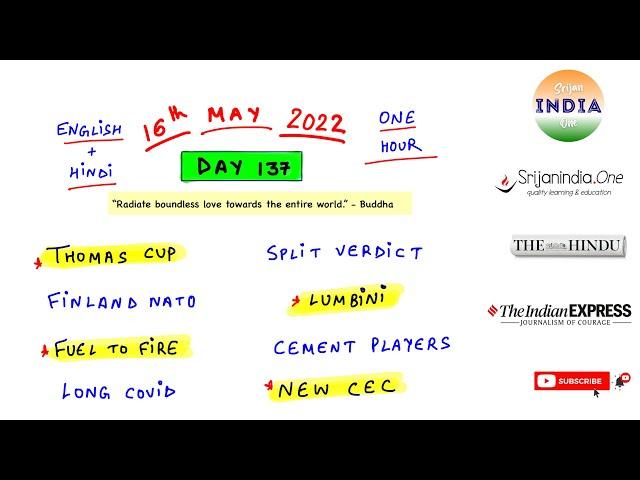 ENGLISH
+
HINDI
16th MAY 2022
ONE
HOUR
DAY 137
"Radiate boundless love towards the entire world." - Buddha
THOMAS CUP
SPLIT VERDICT
FINLAND NATO
LUMBINI
FUEL TO FIRE
CEMENT PLAYERS
LONG COVID
NEW CEC
Srijan
INDIA
One
Srijanindia.One
quality learning & education
THE HINDU
The Indian EXPRESS
JOURNALISM OF COURAGE
SUBSCRIBE